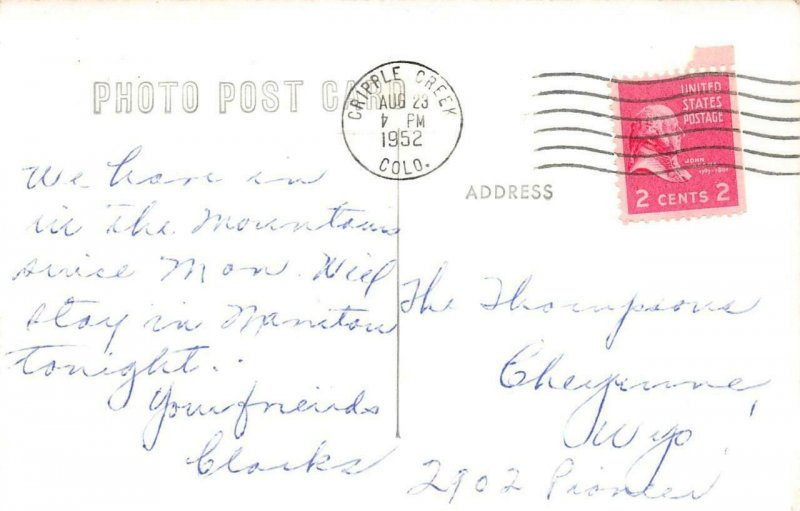 PHOTO POST CARD
CRIPPLE CREEK
AUG 23
PM
1952
COLO.
UNITED
STATES
POSTAGE
JOHN
2 CENTS 2
ADDRESS
We have in
in the Mountains
since Mon. Will
stay in Manitou
tonight..
Your friends
Clarks
The Thompsons
Cheyenne,
Wyo.
2902 Pioneer